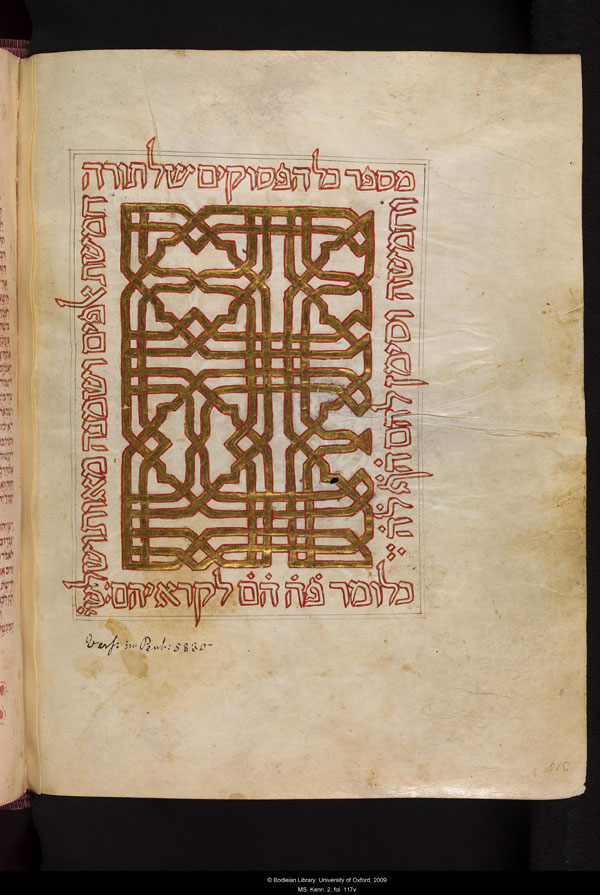 מספר כל הפסוקים שלתורה
חמשת אלפים ושמנה מאות ושלשי
וחמשה וסימן להם החלה
כלומר פה הם לקראיהם:
Vers: in Pent: 5830
© Bodleian Library, University of Oxford, 2009
MS. Kenn. 2, fol. 117v